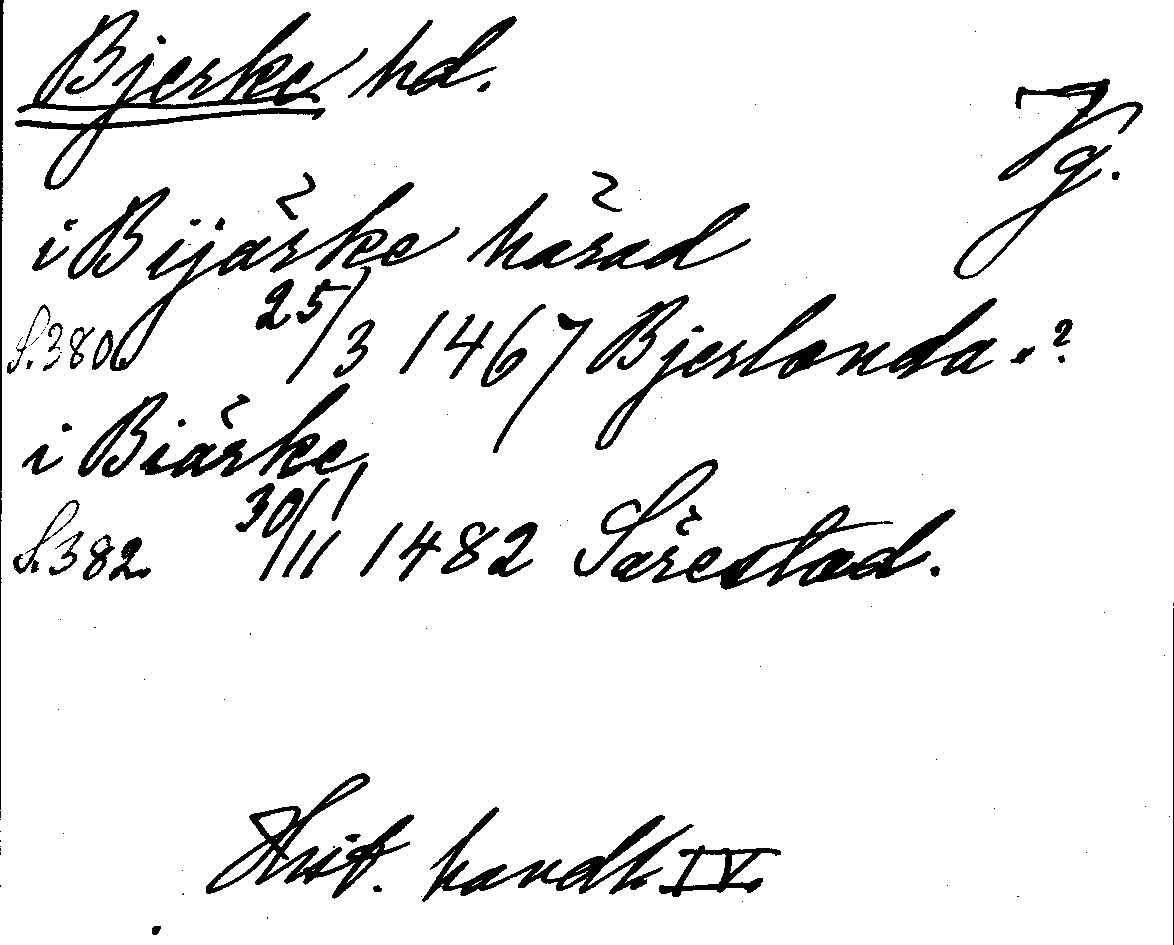 Bjerke hd.
Vg.
i Bijärke härad
S. 380. 25/3 1467 Bjerlanda. ?
i Biärke
S. 382. 30/11 1482 Särestad.
Hist. handl. IV.